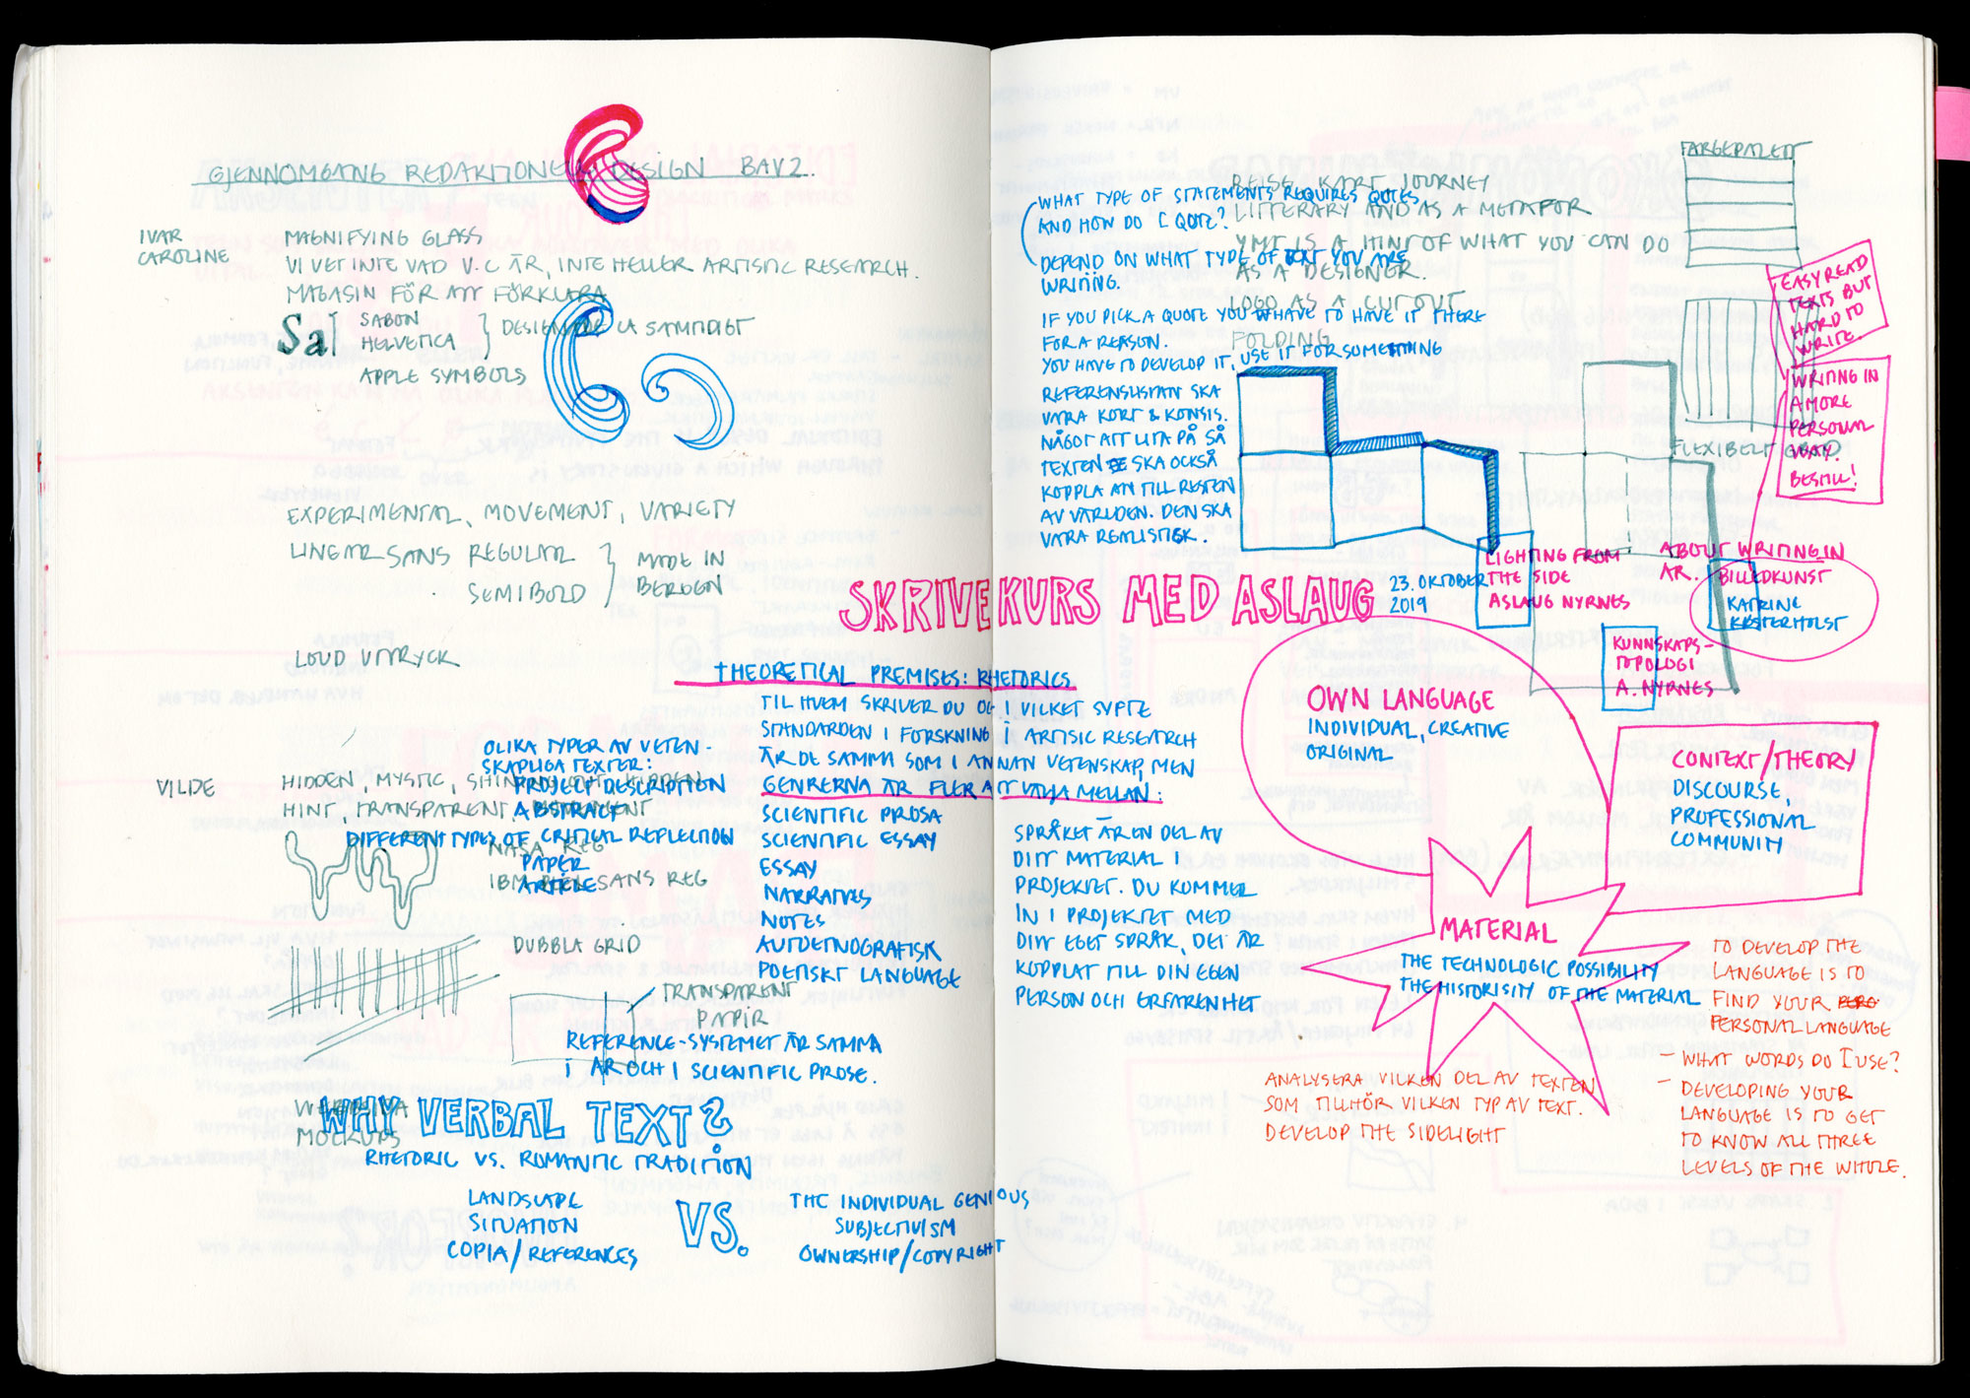 GJENNOMGANG REDAKTIONELL DESIGN BAV2.
IVAR
CAROLINE
MAGNIFYING GLASS
VI VET INTE VAD V.C ÄR, INTE HELLER ARTISTIC RESEARCH.
MAGASIN FÖR ATT FÖRKLARA
Sa
SABON
HELVETICA
DESIGNADE CA SAMTIDIGT
APPLE SYMBOLS
EXPERIMENTAL, MOVEMENT, VARIETY
LINEAR SANS REGULAR
SEMIBOLD
MADE IN
BERGEN
LOUD UTTRYCK
VILDE
HIDDEN, MYSTIC, HIDDEN
HINT, TRANSPARENT,
NASA REG
IBM PLEX SANS REG
DUBBLA GRID
TRANSPARENT
PAPIR
WEBBSIDA
MOCKUPS
OLIKA TYPER AV VETEN-
SKAPLIGA TEXTER:
PROJECT DESCRIPTION
ABSTRACT
DIFFERENT TYPES OF CRITICAL REFLECTION
PAPER
ARTICLE
SKRIVEKURS MED ASLAUG
23. OKTOBER
2019
THEORETICAL PREMISES: RHETORICS
TIL HVEM SKRIVER DU OG I VILKET SYFTE
STANDARDEN I FORSKNING I ARTISIC RESEARCH
ÄR DE SAMMA SOM I ANNAN VETENSKAP, MEN
GENRERNA ÄR FLER ATT VÄLJA MELLAN:
SCIENTIFIC PROSA
SCIENTIFIC ESSAY
ESSAY
NARRATIVES
NOTES
AUTOETNOGRAFISK
POETISKT LANGUAGE
REFERENCE-SYSTEMET ÄR SAMMA
I AR OCH I SCIENTIFIC PROSE.
WHY VERBAL TEXT?
RHETORIC VS. ROMANTIC TRADITION
LANDSCAPE
SITUATION
COPIA/REFERENCES
VS.
THE INDIVIDUAL GENIOUS
SUBJECTIVISM
OWNERSHIP/COPYRIGHT
WHAT TYPE OF STATEMENTS REQUIRES QUOTES
AND HOW DO I QOTE?
DEPEND ON WHAT TYPE OF TEXT YOU ARE
WRITING.
IF YOU PICK A QUOTE YOU HAVE TO HAVE IT THERE
FOR A REASON.
YOU HAVE TO DEVELOP IT, USE IT FOR SOMETHING
REFERENSLISTAN SKA
VARA KORT & KONSIS.
NÅGOT ATT LITA PÅ SÅ
TEXTEN SKA OCKSÅ
KOPPLA AN TILL RESTEN
AV VÄRLDEN. DEN SKA
VARA REALISTISK.
REISE, KART JOURNEY
LITTERARY AND AS A METAFOR
YMT IS A HINT OF WHAT YOU CAN DO
AS A DESIGNER.
LOGO AS A CUTOUT
FOLDING
FARGEPALETT
FLEXIBELT GRID
EASY READ
TEXTS BUT
HARD TO
WRITE.
WRITING IN
A MORE
PERSONAL
WAY.
BESTILL!
LIGHTING FROM
THE SIDE
ASLAUG NYRNES
ABOUT WRITING IN
AR.
BILLEDKUNST
KATRINE
KØSTERHOLST
KUNNSKAPS-
TOPOLOGI
A. NYRNES
OWN LANGUAGE
INDIVIDUAL, CREATIVE
ORIGINAL
CONTEXT/THEORY
DISCOURSE,
PROFESSIONAL
COMMUNITY
MATERIAL
THE TECHNOLOGIC POSSIBILITY
THE HISTORISITY OF THE MATERIAL
SPRÅKET ÄR EN DEL AV
DITT MATERIAL I
PROJEKTET. DU KOMMER
IN I PROJEKTET MED
DITT EGET SPRÅK, DET ÄR
KOPPLAT TILL DIN EGEN
PERSON OCH ERFARENHET
ANALYSERA VILKEN DEL AV TEXTEN
SOM TILLHÖR VILKEN TYP AV TEXT.
DEVELOP THE SIDELIGHT
TO DEVELOP THE
LANGUAGE IS TO
FIND YOUR
PERSONAL LANGUAGE
– WHAT WORDS DO I USE?
– DEVELOPING YOUR
LANGUAGE IS TO GET
TO KNOW ALL THREE
LEVELS OF THE WHOLE.